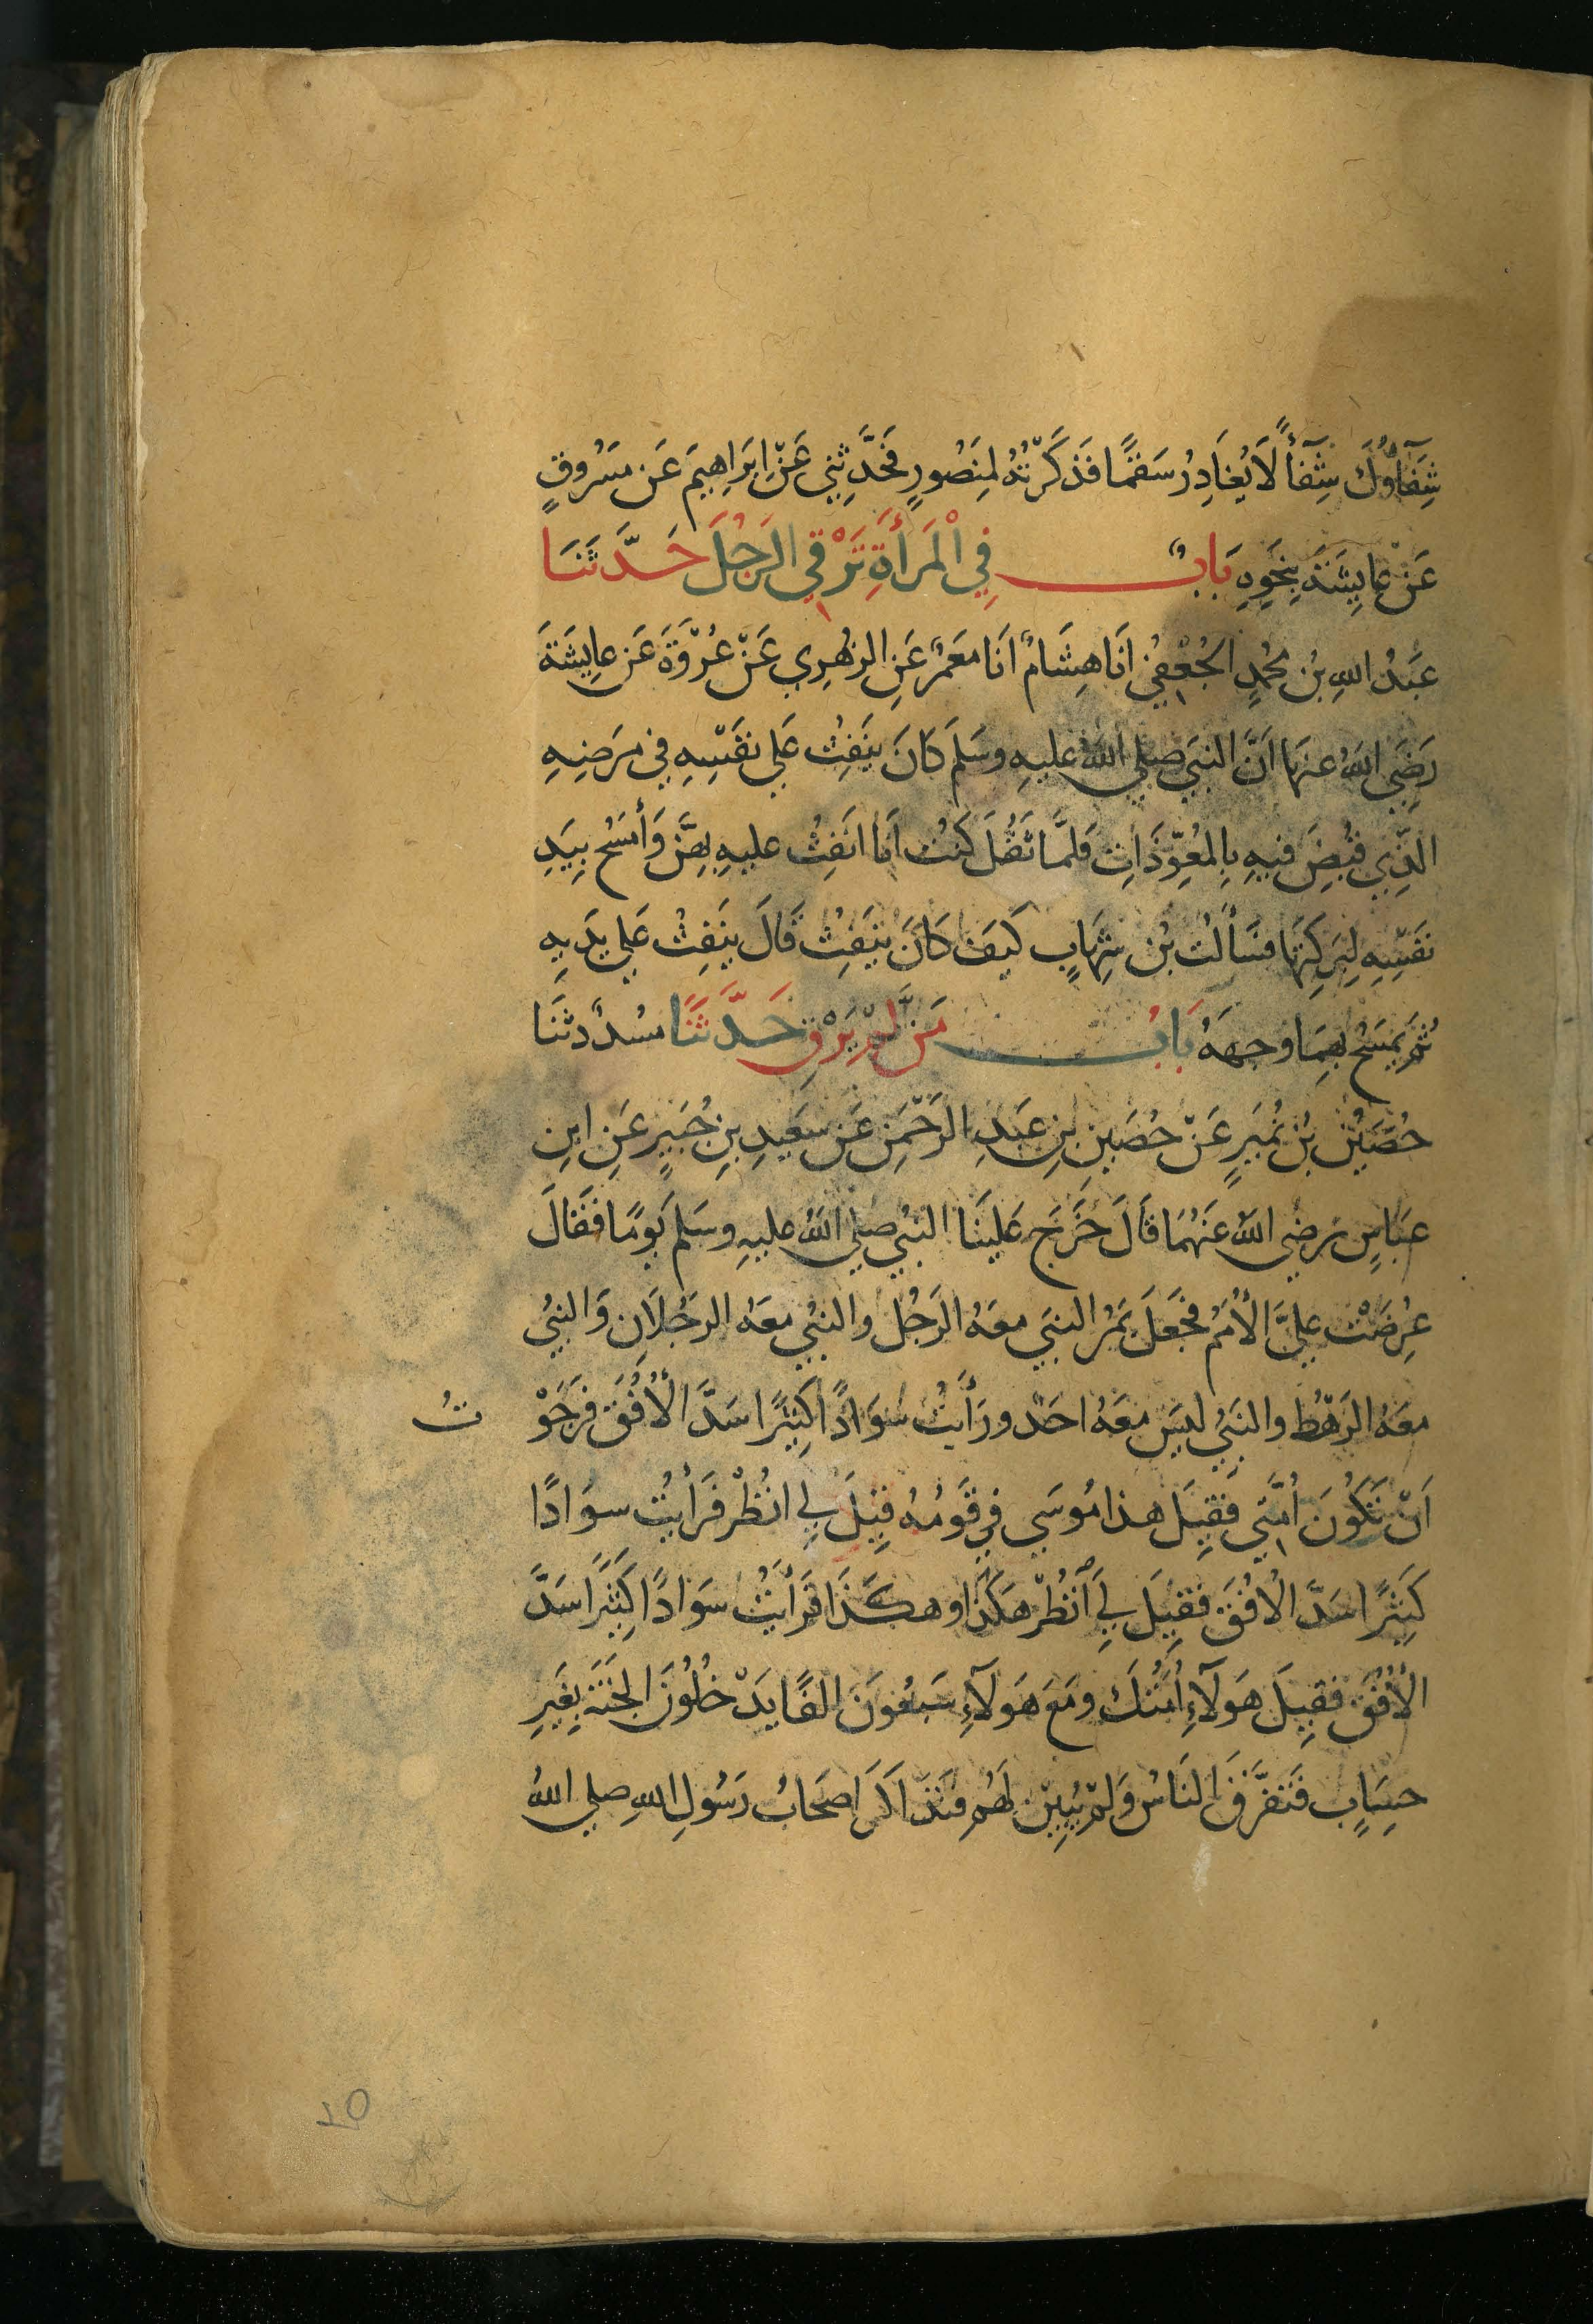 شِفَآؤُكَ شِفَآءً لَا يُغَادِرُ سَقَمًا فَذَكَرْتُهُ لِمَنْصُورٍ فَحَدَّثَنِي عَنْ إِبَرَاهِيمَ عَن مَسْرُوقٍ
عَنْ عايِشَةَ بِنَحْوِهِ بَابٌ فِي الْمَرأَةِ تَرْقِي الرَجُلَ حَدَّثَنَا
عَبْدُ اللهِ بْنُ محُمدٍ الجُعْفِيُ انَا هِشَامٌ انَا مَعْمَرٌ عَنِ الزهْرِي عَنْ عُرْوَةَ عَن عايِشَةَ
رَضِيَ اللهُ عنهَا اَنَّ النبيَ صلي اللهُ عليهِ وسَلمَ كَانَ يَنفِثُ عَلي نفسِهِ في مرَضِهِ
الذِي قبُضَ فيهِ بِالمعُوِّذَاتِ فَلمَّا ثَقُلَ كُنتُ اَنا انَفِثُ عليهِ بِهِنَّ وَأمسَحُ بِيَدِ
نفَسِهِ لِبَرَكتِهَا فسَألتُ بْن شِهَابٍ كَيفَ كَانَ ينَفِثُ قَالَ ينَفِثُ عَلي يدَيهِ
ثُمَ يَمسَحُ بِهِمَا وجهَهُ بَابُ مَن لَمْ يَرْقِ حَدَّثَنَا مسُددٌ ثنَا
حُصَيْنُ بْنُ نُمَيرٍ عَنْ حُصَينِ بنِ عَبدِ الرَحْمنِ عَن سَعِيدِ بنِ جُبَيرٍ عَنِ ابنِ
عبَاسٍ رَضي اللهُ عَنهُمَا قالَ خَرَجَ عَلَينَا النبيُ صلي اللهُ عليهِ وسَلم يَومًا فقَالَ
عُرِضَتْ عليَّ الأُمَمُ فجَعَلَ يَمُرُ النبيَ معَهُ الرَجُل والنبيُ معَهُ الرجُلاَنِ وَالنبيُ
معَهُ الرَهْطُ والنبَيُ ليَسَ معَهُ احَد ورَأَيتُ سوَادًا كَثِيرًا سَدَّ الأُفُقَ فرَجَوْ تُ
اَنْ تَكُونَ أُمَّتِي فَقِيلَ هذا مُوسَي في قَومُهُ قِيلَ لِي انْظُرْ فَرَأيتُ سوَادًا
كَثِيرًا سَدَّ الاُفُقَ فقِيلَ لِي اَنْظُرْ هكَذَا وهكَذَا فرَأَيتُ سوَادًا كَثِيرًا سَدَّ
الأُفُقَ فقِيلَ هَوَلآءِ أُمَّتُكَ ومَعَ هَوَلآءِ سَبعُونَ الفًا يَدْخُلُونَ الجنَةَ بِغَيرِ
حِسَابٍ فَتفَرَّقَ النَاسُ وَلمْ يُبينْ لَهُم فتَذَاكَر اصحَابُ رَسُولِ اللهِ صلي اللهُ